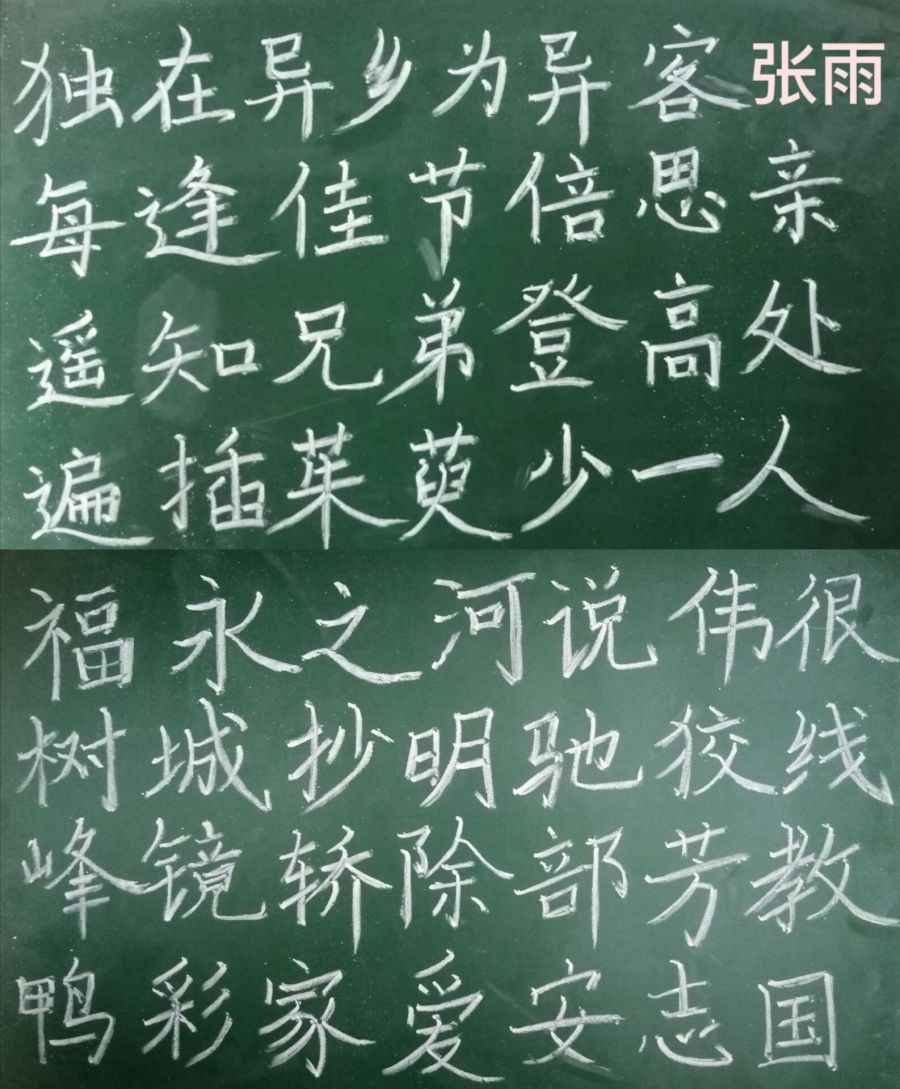 独在异乡为异客 张雨
每逢佳节倍思亲
遥知兄弟登高处
遍插茱萸少一人
福永之河说伟很
树城抄明驰狡线
峰镜轿除部芳教
鸭彩家爱安志国